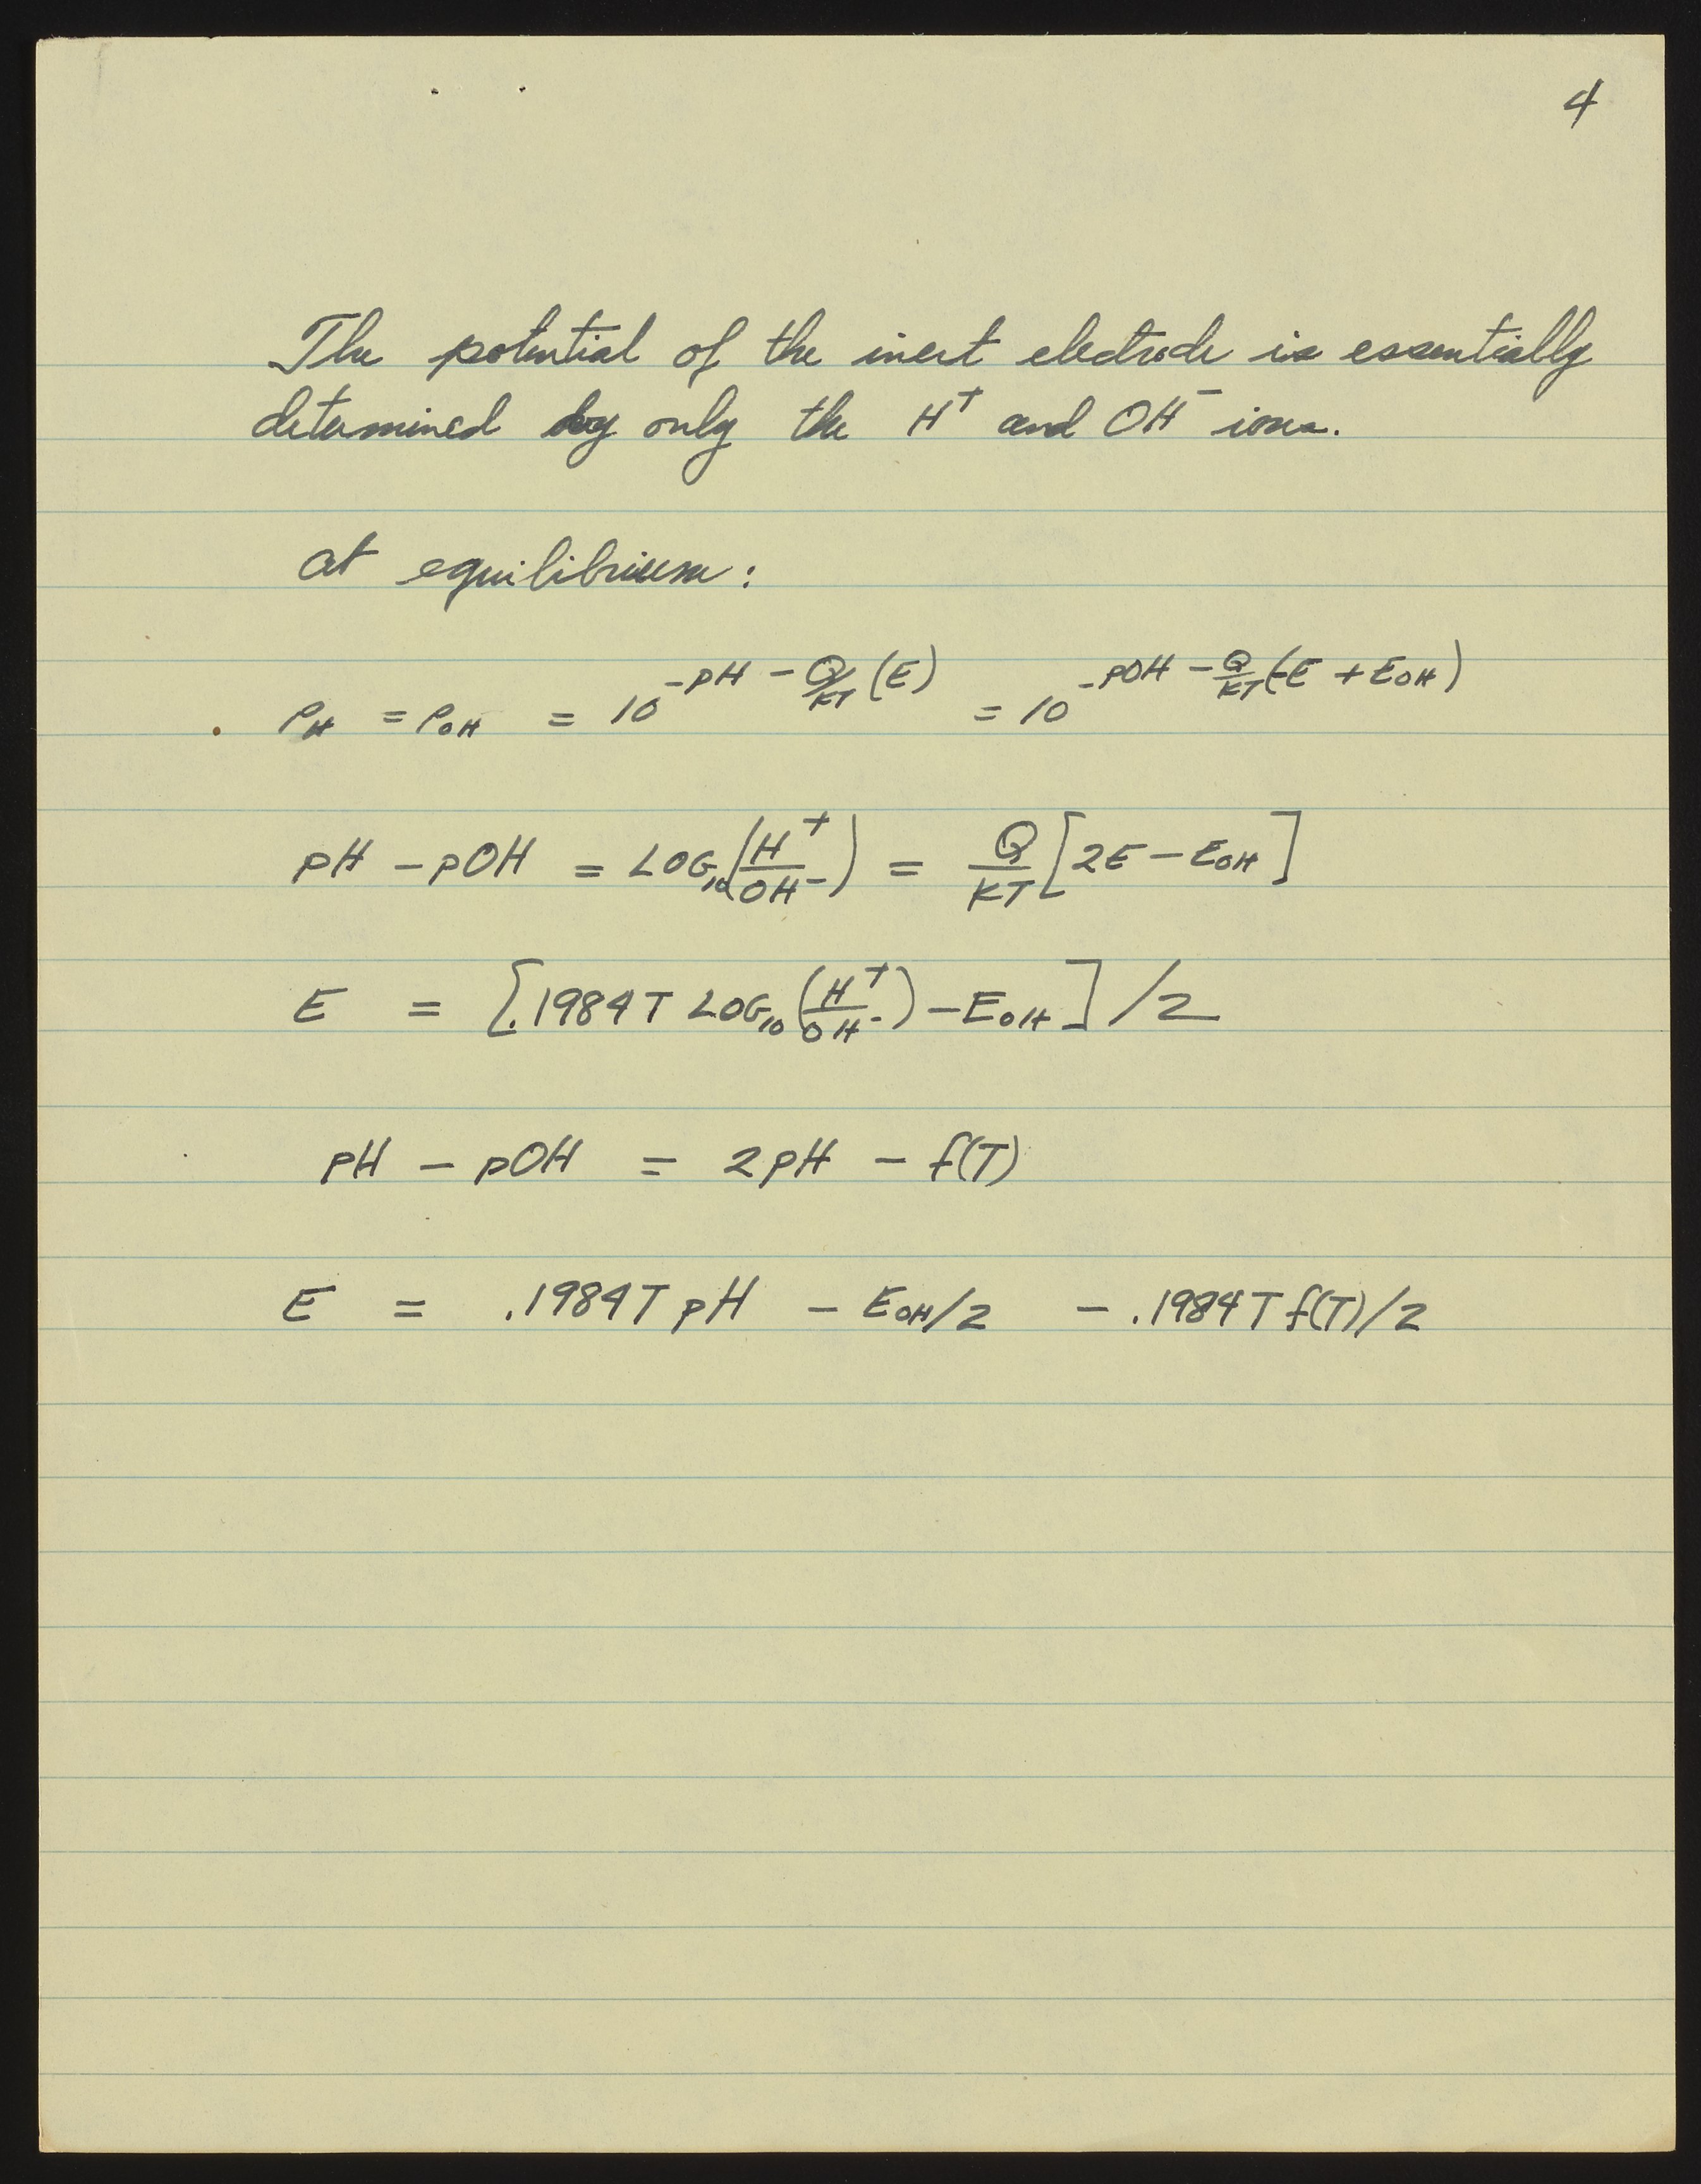 4
The potential of the inert electrode is essentially
determined by only the H⁺ and OH⁻ ions.
at equilibrium:
ρ_H = ρ_OH = 10^(-pH - Q/KT (E)) = 10^(-pOH - Q/KT (-E + E_OH))
pH - pOH = LOG₁₀(H⁺/OH⁻) = Q/KT [2E - E_OH]
E = [.1984T LOG₁₀(H⁺/OH⁻) - E_OH] /2
pH - pOH = 2pH - f(T)
E = .1984T pH - E_OH/2 - .1984T f(T)/2